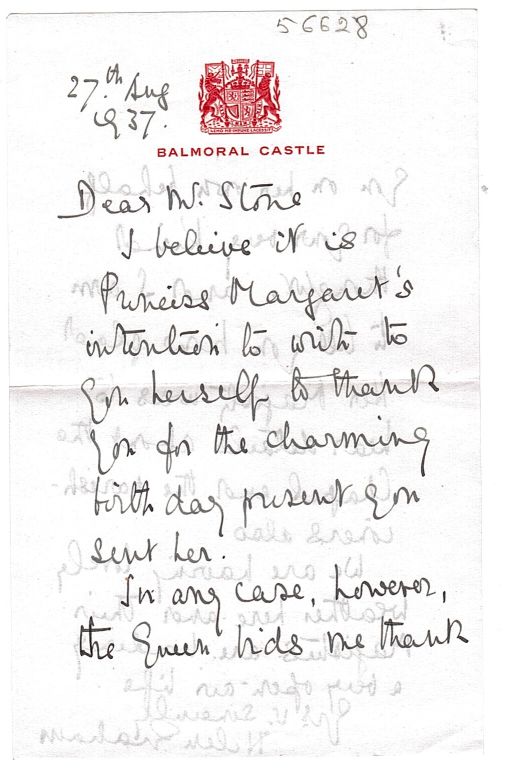 56628
27.th Aug
1937.
BALMORAL CASTLE
Dear Mr. Stone
I believe it is
Princess Margaret's
intention to write to
you herself to thank
you for the charming
birthday present you
sent her.
In any case, however,
the Queen bids me thank